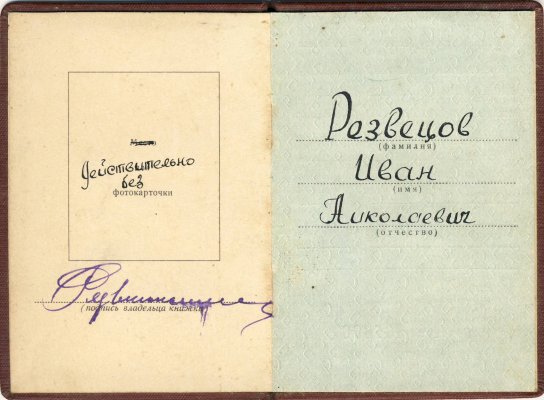 Место
Действительно
без
фотокарточки
(подпись владельца книжки)
Резвецов
(фамилия)
Иван
(имя)
Николаевич
(отчество)